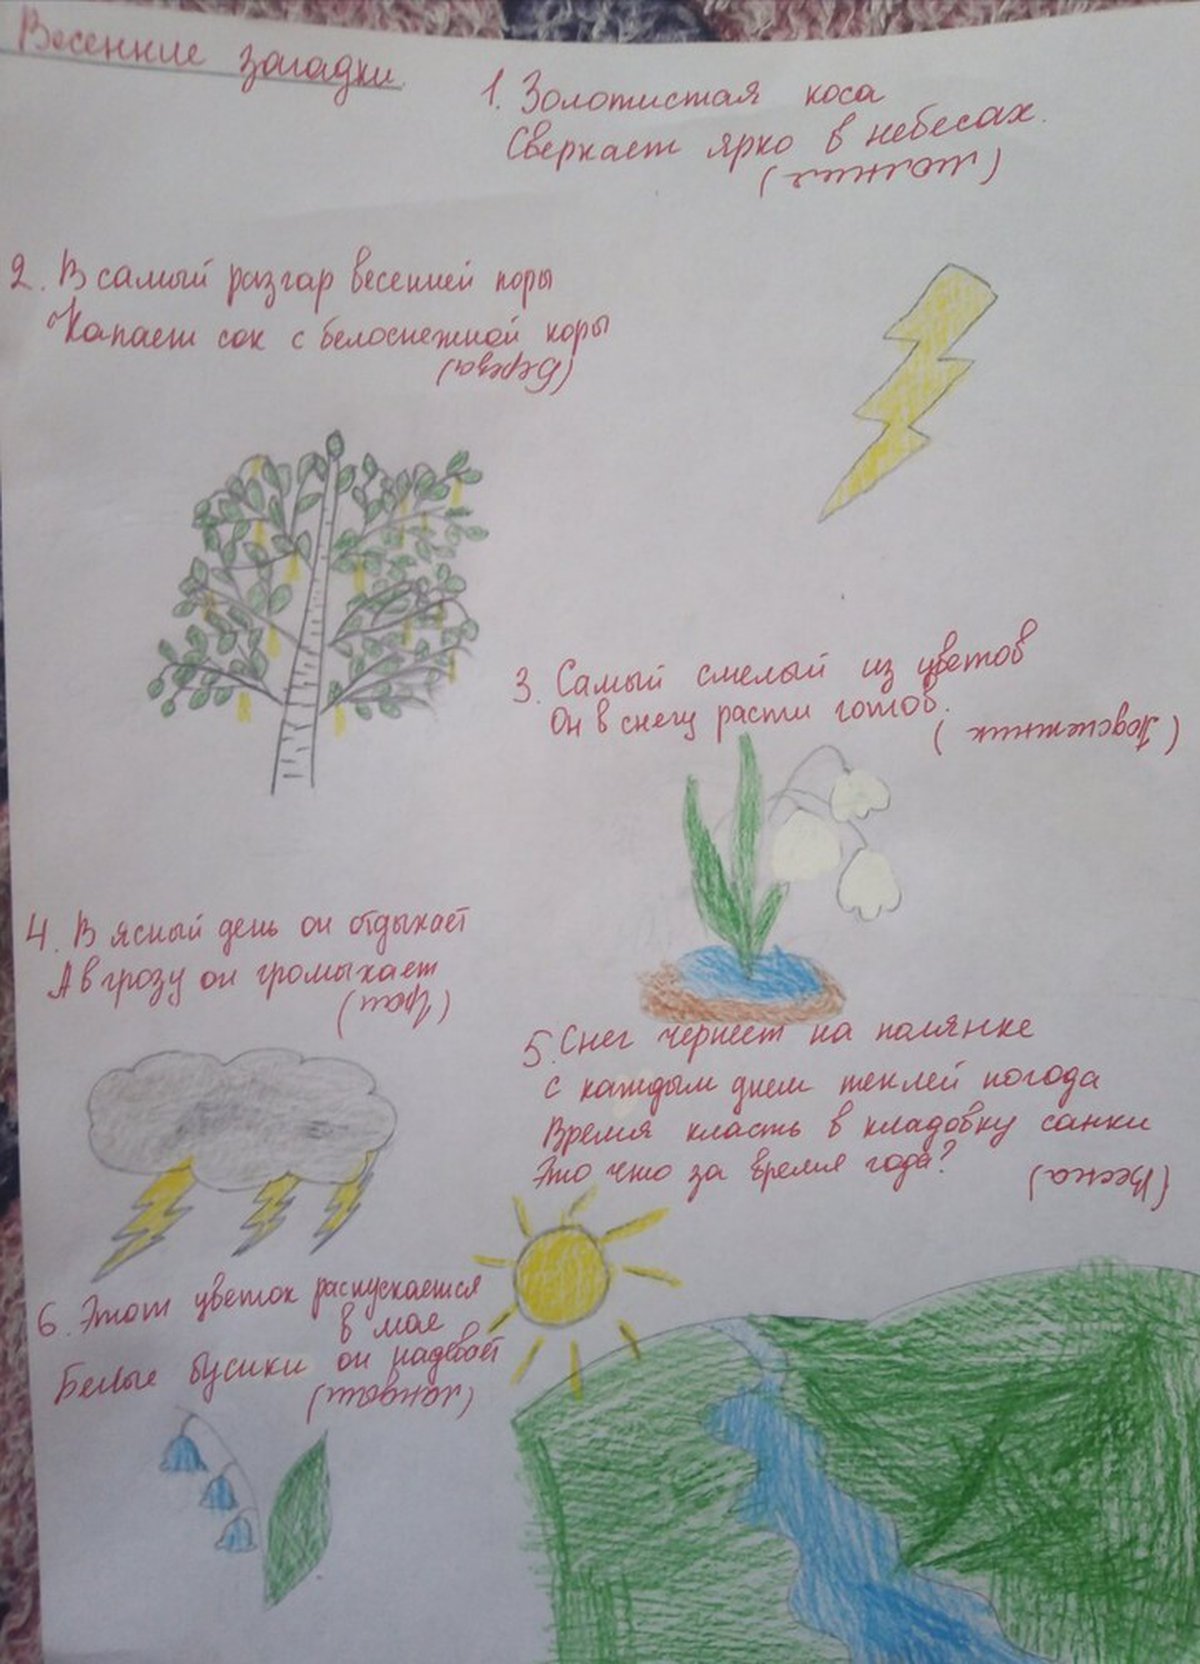 Весенние загадки.
1. Золотистая коса
Сверкает ярко в небесах.
(молния)
2. В самый разгар весенней поры
Капает сок с белоснежной коры
(Берёза)
3. Самый смелый из цветов
Он в снегу расти готов.
(Подснежник)
4. В ясный день он отдыхает
А в грозу он громыхает
(Гром)
5. Снег чернеет на полянке
с каждым днем теплей погода
Время класть в кладовку санки
Это что за время года?
(Весна)
6. Этот цветок распускается
в мае
Белые бусики он надевает
(ландыш)